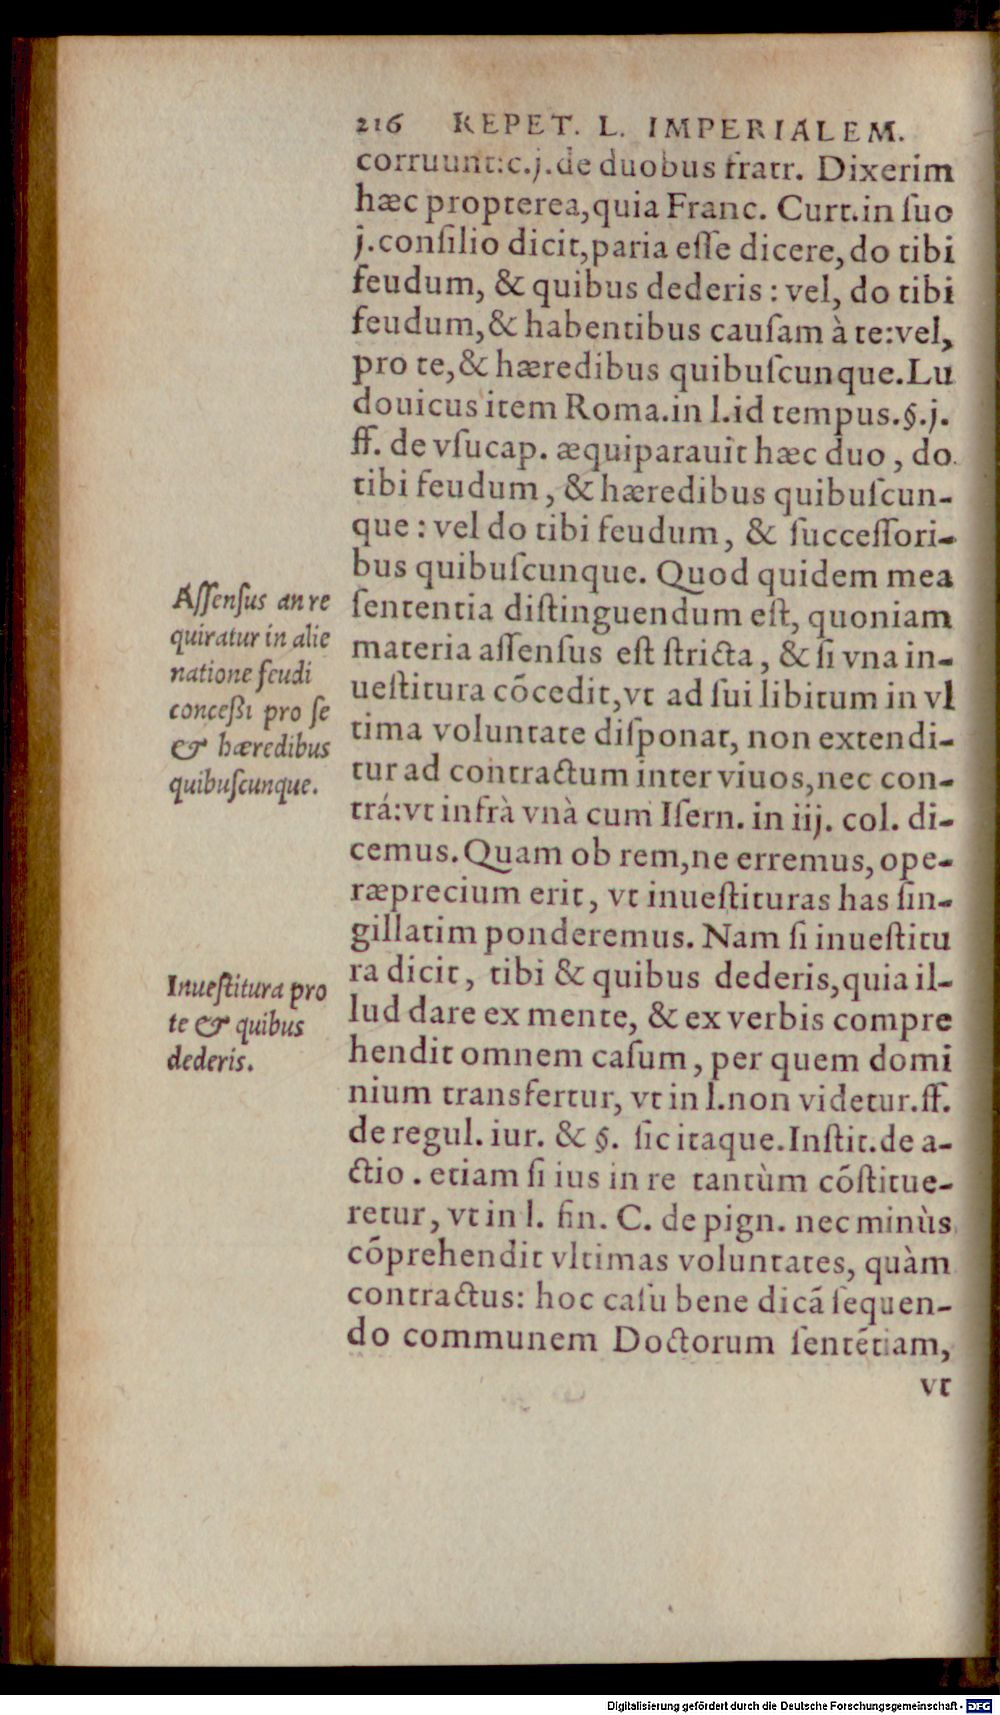 216 REPET. L. IMPERIALEM.
corruunt:c.j.de duobus fratr. Dixerim
hæc propterea,quia Franc. Curt.in ſuo
j.conſilio dicit,paria eſſe dicere,do tibi
feudum, & quibus dederis : vel, do tibi
feudum,& habentibus cauſam à te:vel,
pro te,& hæredibus quibuſcunque.Lu
douicus item Roma.in l.id tempus.§.j.
ff. de vſucap. æquiparauit hæc duo , do
tibi feudum , & hæredibus quibuſcun-
que : vel do tibi feudum, & ſucceſſori-
bus quibuſcunque. Quod quidem mea
ſententia diſtinguendum eſt, quoniam
materia aſſenſus eſt ſtricta , & ſi vna in-
ueſtitura cõcedit,vt ad ſui libitum in vl
tima voluntate diſponat, non extendi-
tur ad contractum inter viuos,nec con-
trá:vt infrà vnà cum Iſern. in iij. col. di-
cemus.Quam ob rem,ne erremus, ope-
ræprecium erit , vt inueſtituras has ſin-
gillatim ponderemus. Nam ſi inueſtitu
ra dicit , tibi & quibus dederis,quia il-
lud dare ex mente, & ex verbis compre
hendit omnem caſum , per quem domi
nium transfertur, vt in l.non videtur.ff.
de regul. iur. & §. ſic itaque.Inſtit.de a-
ctio . etiam ſi ius in re tantùm cõſtitue-
retur, vt in l. fin. C. de pign. nec minùs
cõprehendit vltimas voluntates, quàm
contractus: hoc caſu bene dicã ſequen-
do communem Doctorum ſentẽtiam,
vt
Aſſenſus an re
quiratur in alie
natione feudi
conceßi pro ſe
& hæredibus
quibuſcunque.
Inueſtitura pro
te & quibus
dederis.
Digitalisierung gefördert durch die Deutsche Forschungsgemeinschaft - DFG